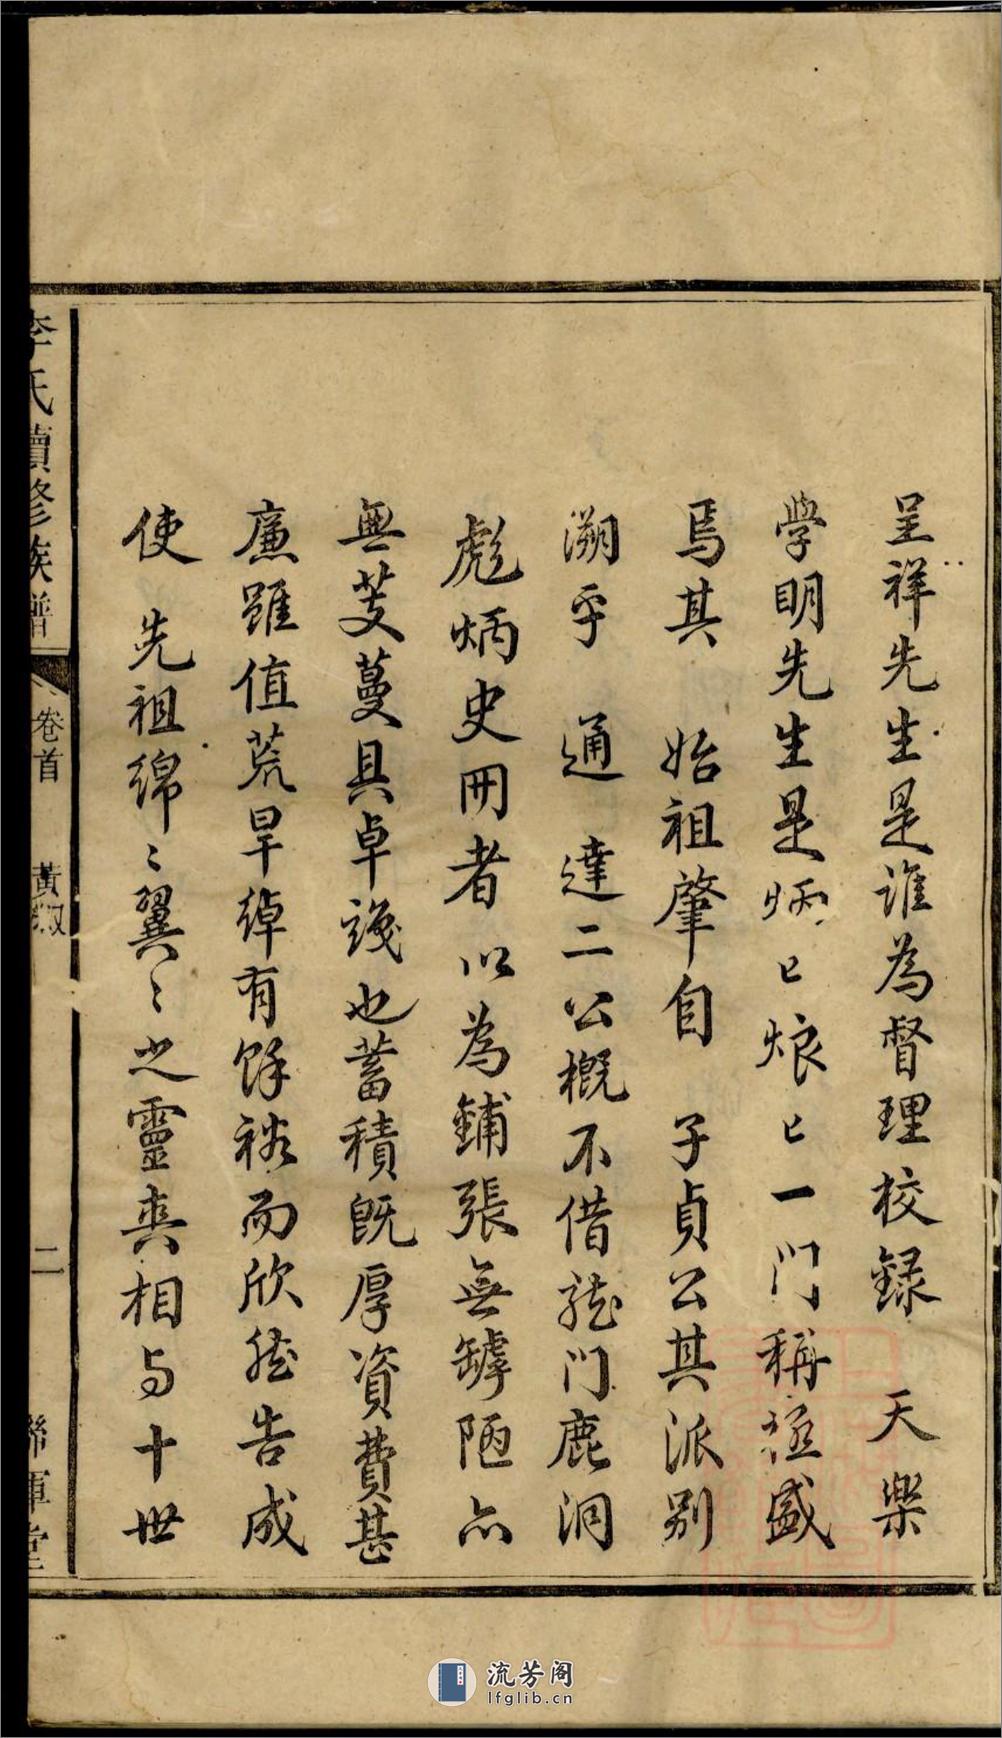 呈祥先生是誰為督理校録 天樂
學明先生是炳〻烺〻一门稱極盛
焉其 始祖肇自 子貞公其派别
溯乎 通 達二公概不借龍门鹿洞
彪炳史冊者以為鋪張無罅陋亦
無芟蔓具卓識也蓄積既厚資費甚
廉雖值荒旱綽有餘裕而欣然告成
使 先祖綿〻翼〻之靈爽相与十世
李氏續修族譜
卷首
黃叙
二
聯輝堂
流芳阁
lfglib.cn